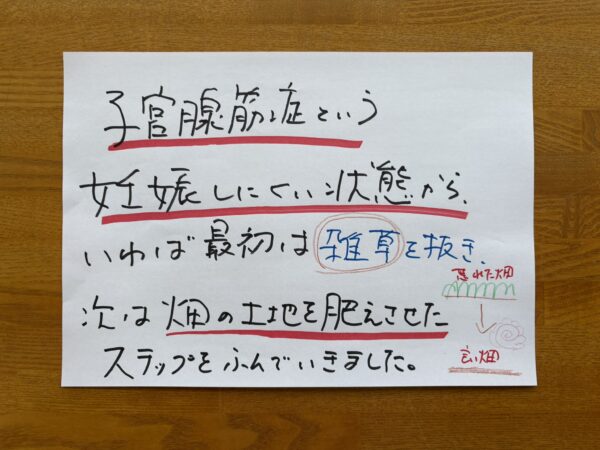 子宮腺筋症という
妊娠しにくい状態から、
いわば最初は雑草を抜き、
次は畑の土地を肥えさせた
ステップをふんでいきました。
荒れた畑
良い畑